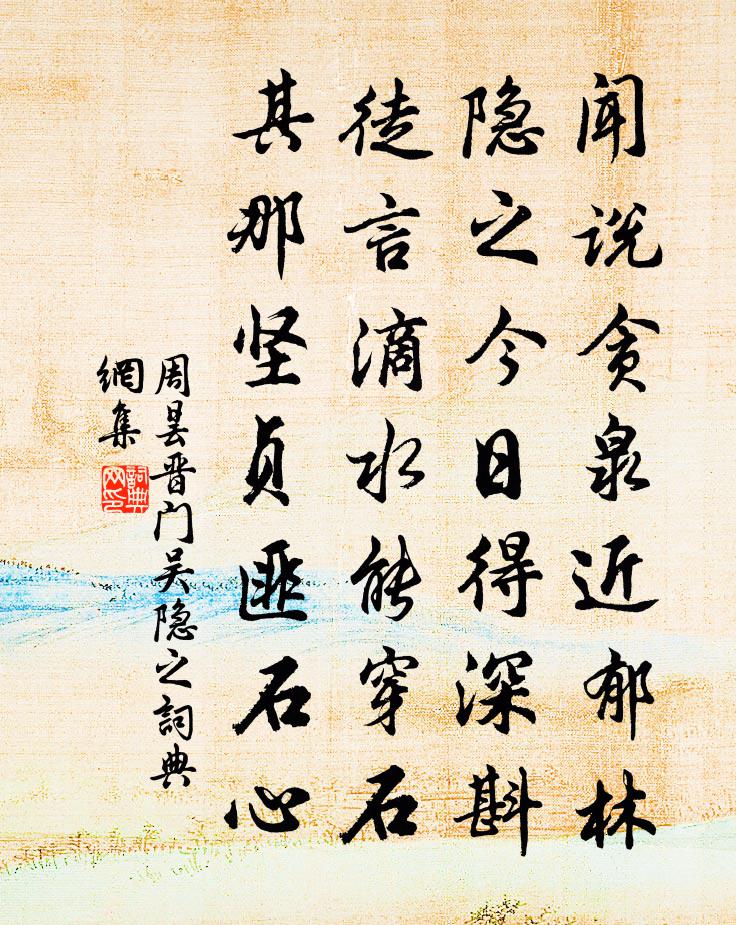 闻说贪泉近郁林
隐之今日得深斟
徒言滴水能穿石
其那坚贞匪石心
周昙晋门吴隐之詞典
網集
詞典
网印